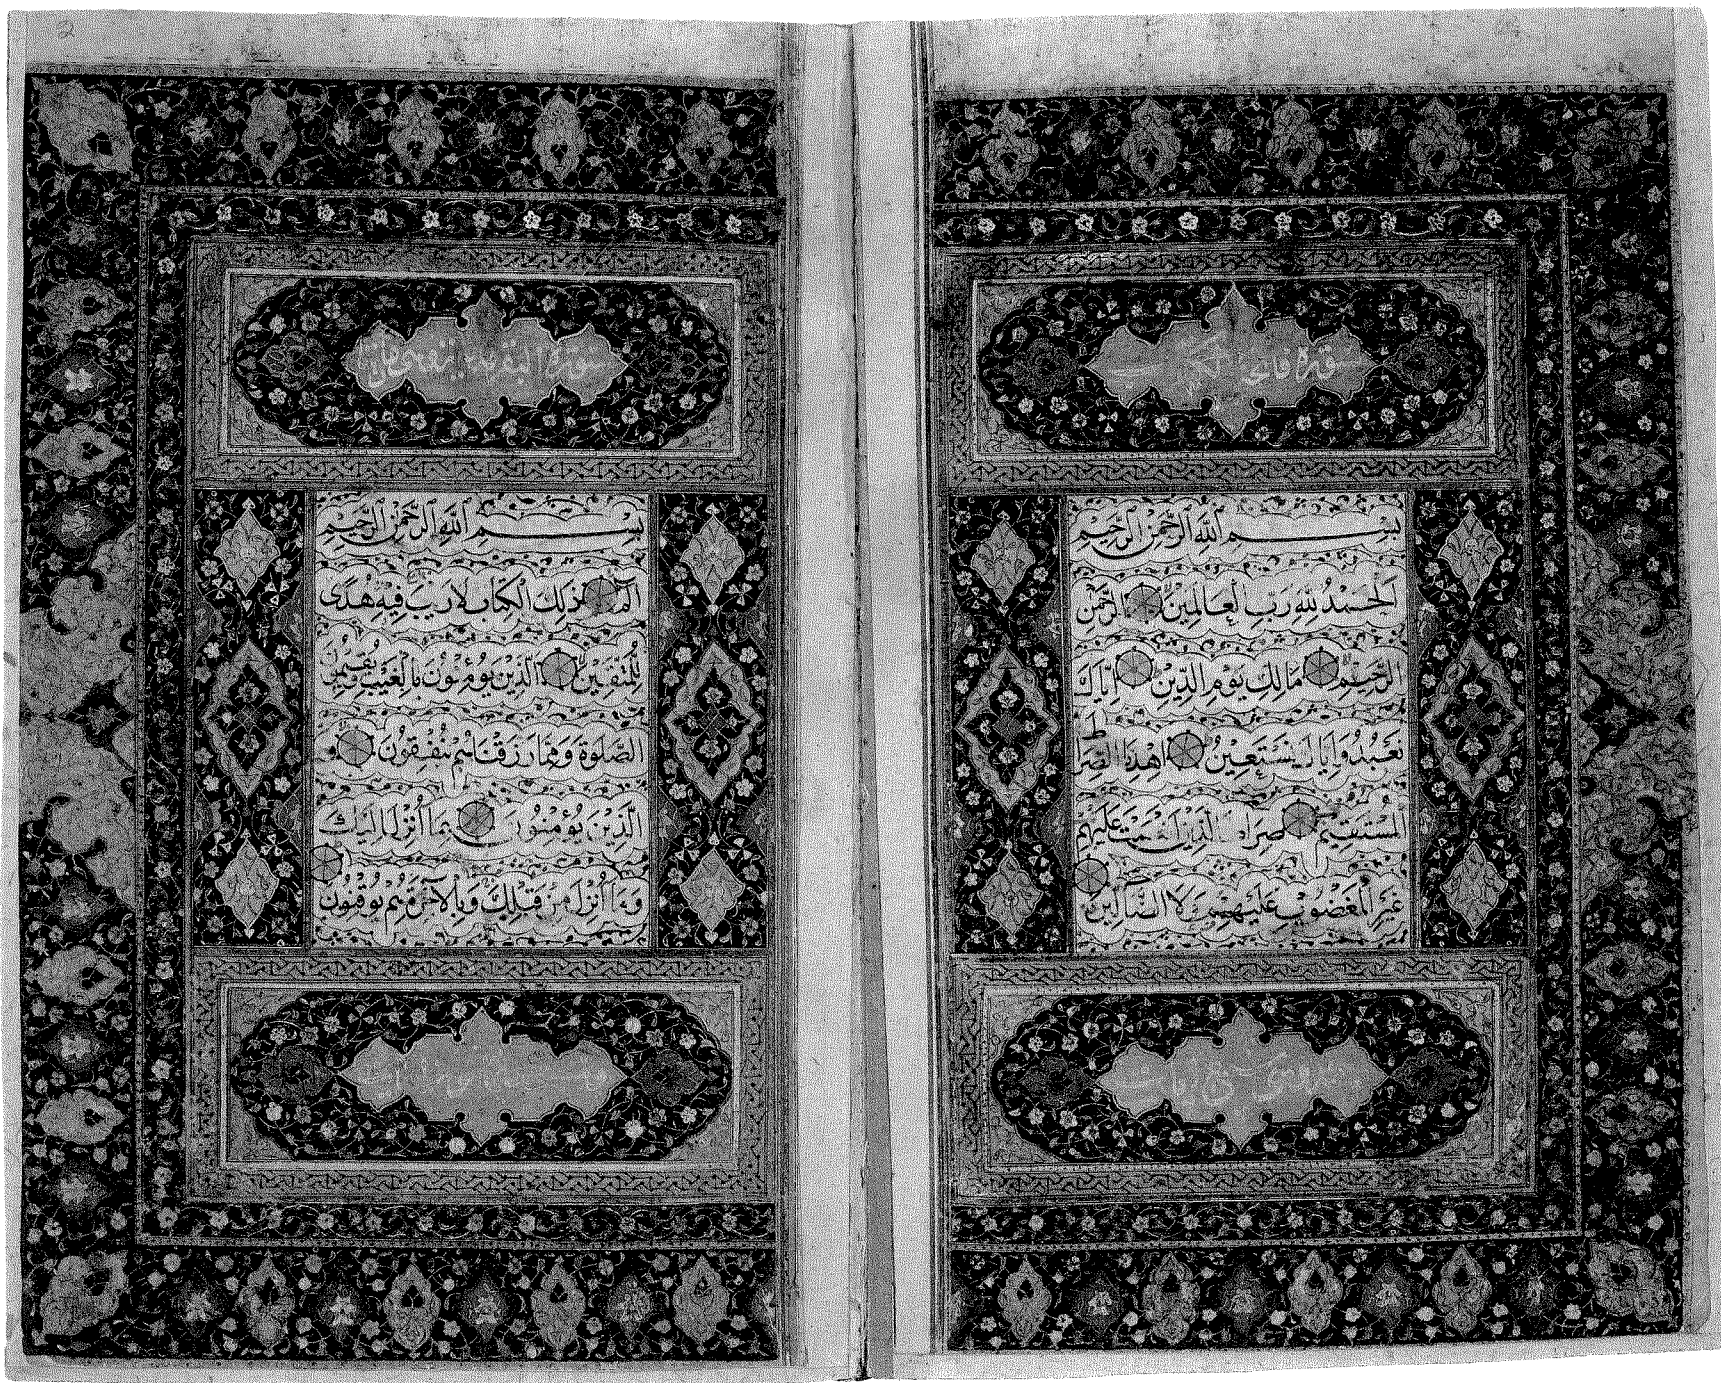 سورة فاتحة الكتاب
بِسْمِ اللَّهِ الرَّحْمٰنِ الرَّحِيمِ
اَلْحَمْدُ لِلّٰهِ رَبِّ الْعَالَمِينَ الرَّحْمٰنِ
الرَّحِيمِ مَالِكِ يَوْمِ الدِّينِ اِيَّاكَ
نَعْبُدُ وَاِيَّاكَ نَسْتَعِينُ اِهْدِنَا الصِّرَاطَ
الْمُسْتَقِيمَ صِرَاطَ الَّذِينَ اَنْعَمْتَ عَلَيْهِمْ
غَيْرِ الْمَغْضُوبِ عَلَيْهِمْ وَلَا الضَّالِّينَ
سورة البقرة
بِسْمِ اللَّهِ الرَّحْمٰنِ الرَّحِيمِ
الٓمٓ ذٰلِكَ الْكِتَابُ لَا رَيْبَ فِيهِ هُدًى
لِلْمُتَّقِينَ الَّذِينَ يُؤْمِنُونَ بِالْغَيْبِ وَيُقِيمُونَ
الصَّلٰوةَ وَمِمَّا رَزَقْنَاهُمْ يُنْفِقُونَ
وَالَّذِينَ يُؤْمِنُونَ بِمَا اُنْزِلَ اِلَيْكَ
وَمَا اُنْزِلَ مِنْ قَبْلِكَ وَبِالْاٰخِرَةِ هُمْ يُوقِنُونَ